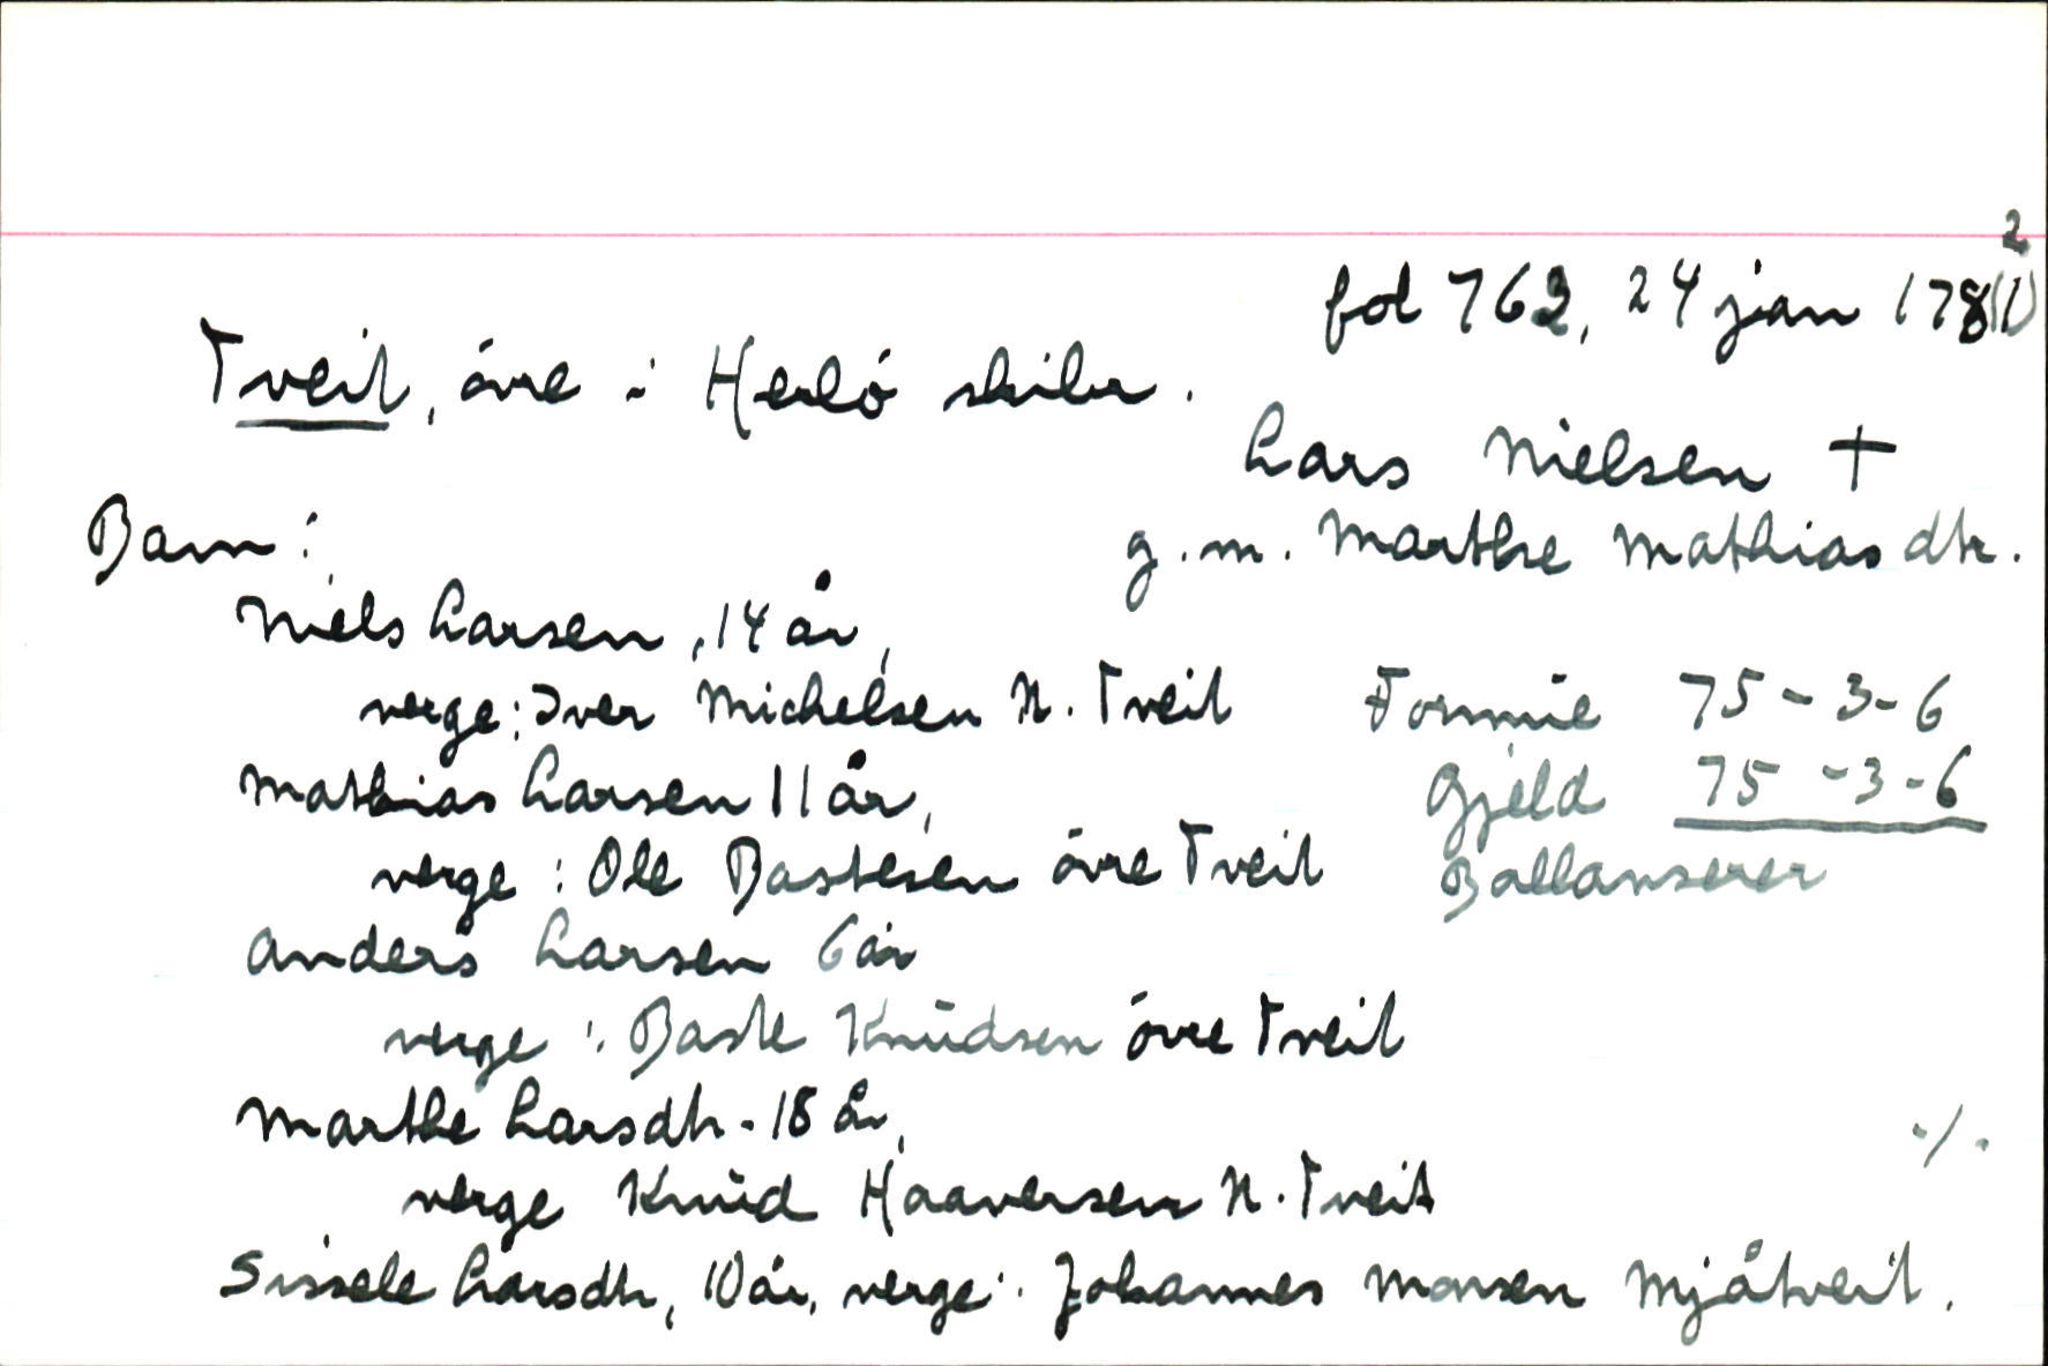 2
fol 762, 24 jan 178(1)
Tveit, övre i Herlö skibr.
Lars Nielsen †
Barn:
g. m. Marthe Mathiasdtr.
Niels Larsen, 14 år,
verge: Iver Michelsen N. Tveit
Formue 75-3-6
Mathias Larsen 11 år,
Gjeld 75-3-6
verge: Ole Bastesen övre Tveit
Ballanserer
Anders Larsen 6 år
verge: Baste Knudsen övre Tveit
Marthe Larsdtr. 18 år,
./.
verge Knud Haaversen N. Tveit
Sissele Larsdtr, 10 år, verge: Johannes Monsen Mjåtveit.